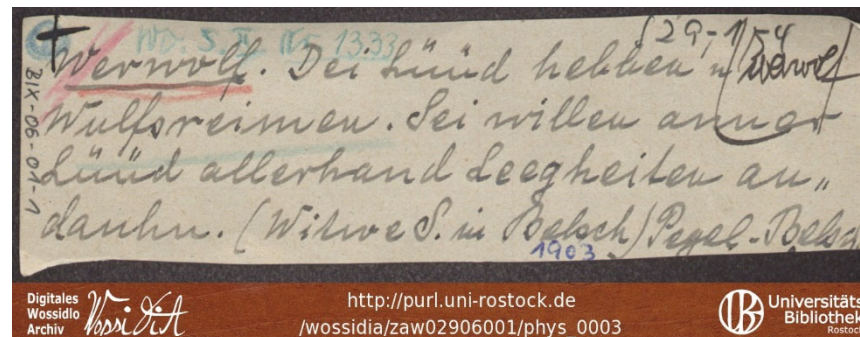 Wo. S. II Nr. 1333 129,-1/54
Werwolf. Dei Lüüd hebben 'n Werwolf
Wulfsreimen. Sei willen anner
Lüüd allerhand Leegheiten an„
dauhn. (Witwe S. in Belsch) Pegel-Belsch
1903
BIX-06-01-1
Digitales
Wossidlo
Archiv
WossiDiA
http://purl.uni-rostock.de
/wossidia/zaw02906001/phys_0003
Universitäts
Bibliothek
Rostock